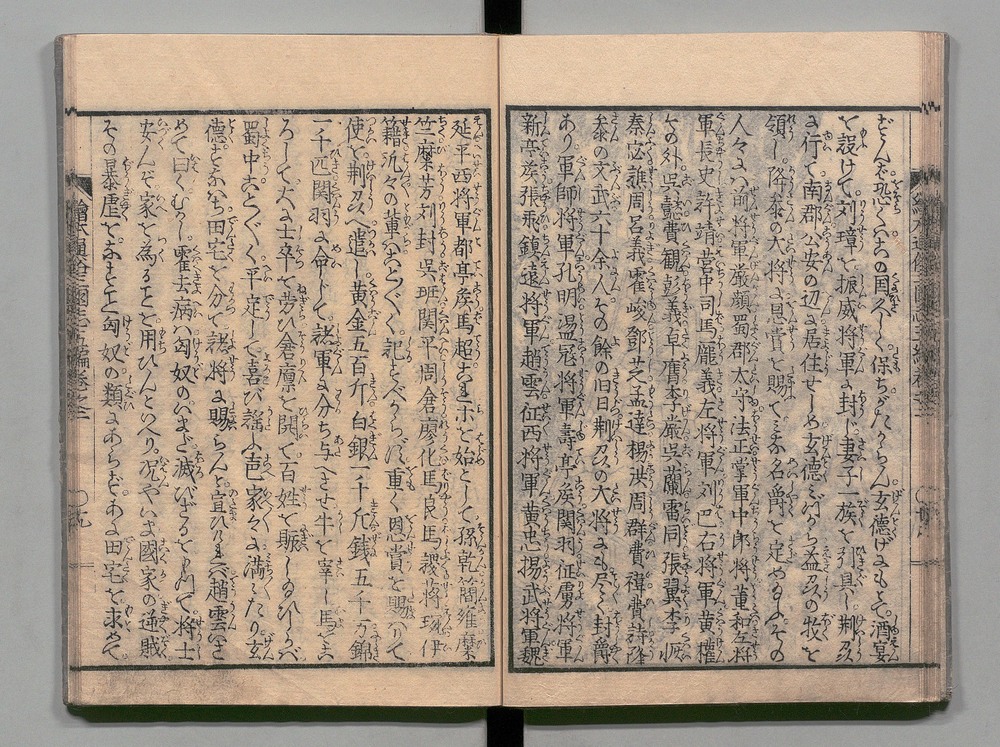 ずんば恐くハこの国久しく保ちがたからん玄徳げにもとて酒宴
を設けて刘璋を振威将軍に封じ妻子一族を引具し荆刕
に行て南郡公安の辺に居住せしめ玄徳ミづから益刕の牧を
領し降参の大将に恩賞を賜てミな名爵を定めらるゝその
人々にハ前将軍厳顔蜀郡太守法正掌軍中郎将董和左将
軍長史許靖営中司馬龐義左将軍刘巴右将軍黄権
その外呉懿費観彭義卓膺李厳呉蘭雷同張翼李恢
秦宓譙周呂義霍峻鄧芝孟達楊洪周群費禕費詩降
参の文武六十余人その餘の旧日荆刕の大将にも尽く封賞
あり軍師将軍孔明盪冦将軍壽亭侯関羽征虜将軍
新亭侯張飛鎮遠将軍趙雲征西将軍黄忠揚武将軍魏
延平西将軍都亭侯馬超これらを始として孫乾簡雍糜
竺糜芳刘封呉班関平周倉廖化馬良馬謖蒋琬伊
籍近々の輩ハことごとく記すべからだ重く恩賞を賜ハりて
使を荆刕に遣し黄金五百斤白銀一千斤銭五千万錦
一千匹関羽に命じて諸軍に分ち与へさせ牛を宰し馬をこ
ろして大に士卒を労ひ倉廪を開て百姓を賑しるひしかバ
蜀中ことごとく平定して喜び謡ふ声家々に満にたり玄
徳すなハち田宅を分て諸将に賜らんと宣ひけれバ趙雲いさ
めて曰くむかし霍去病ハ匈奴のいまだ滅びざるを以て将士
安んぞ家を為ることを用ひんといへり况やいま國家の逆賊
その暴虐をなすこと匈奴の類にあらずあに田宅を求めて